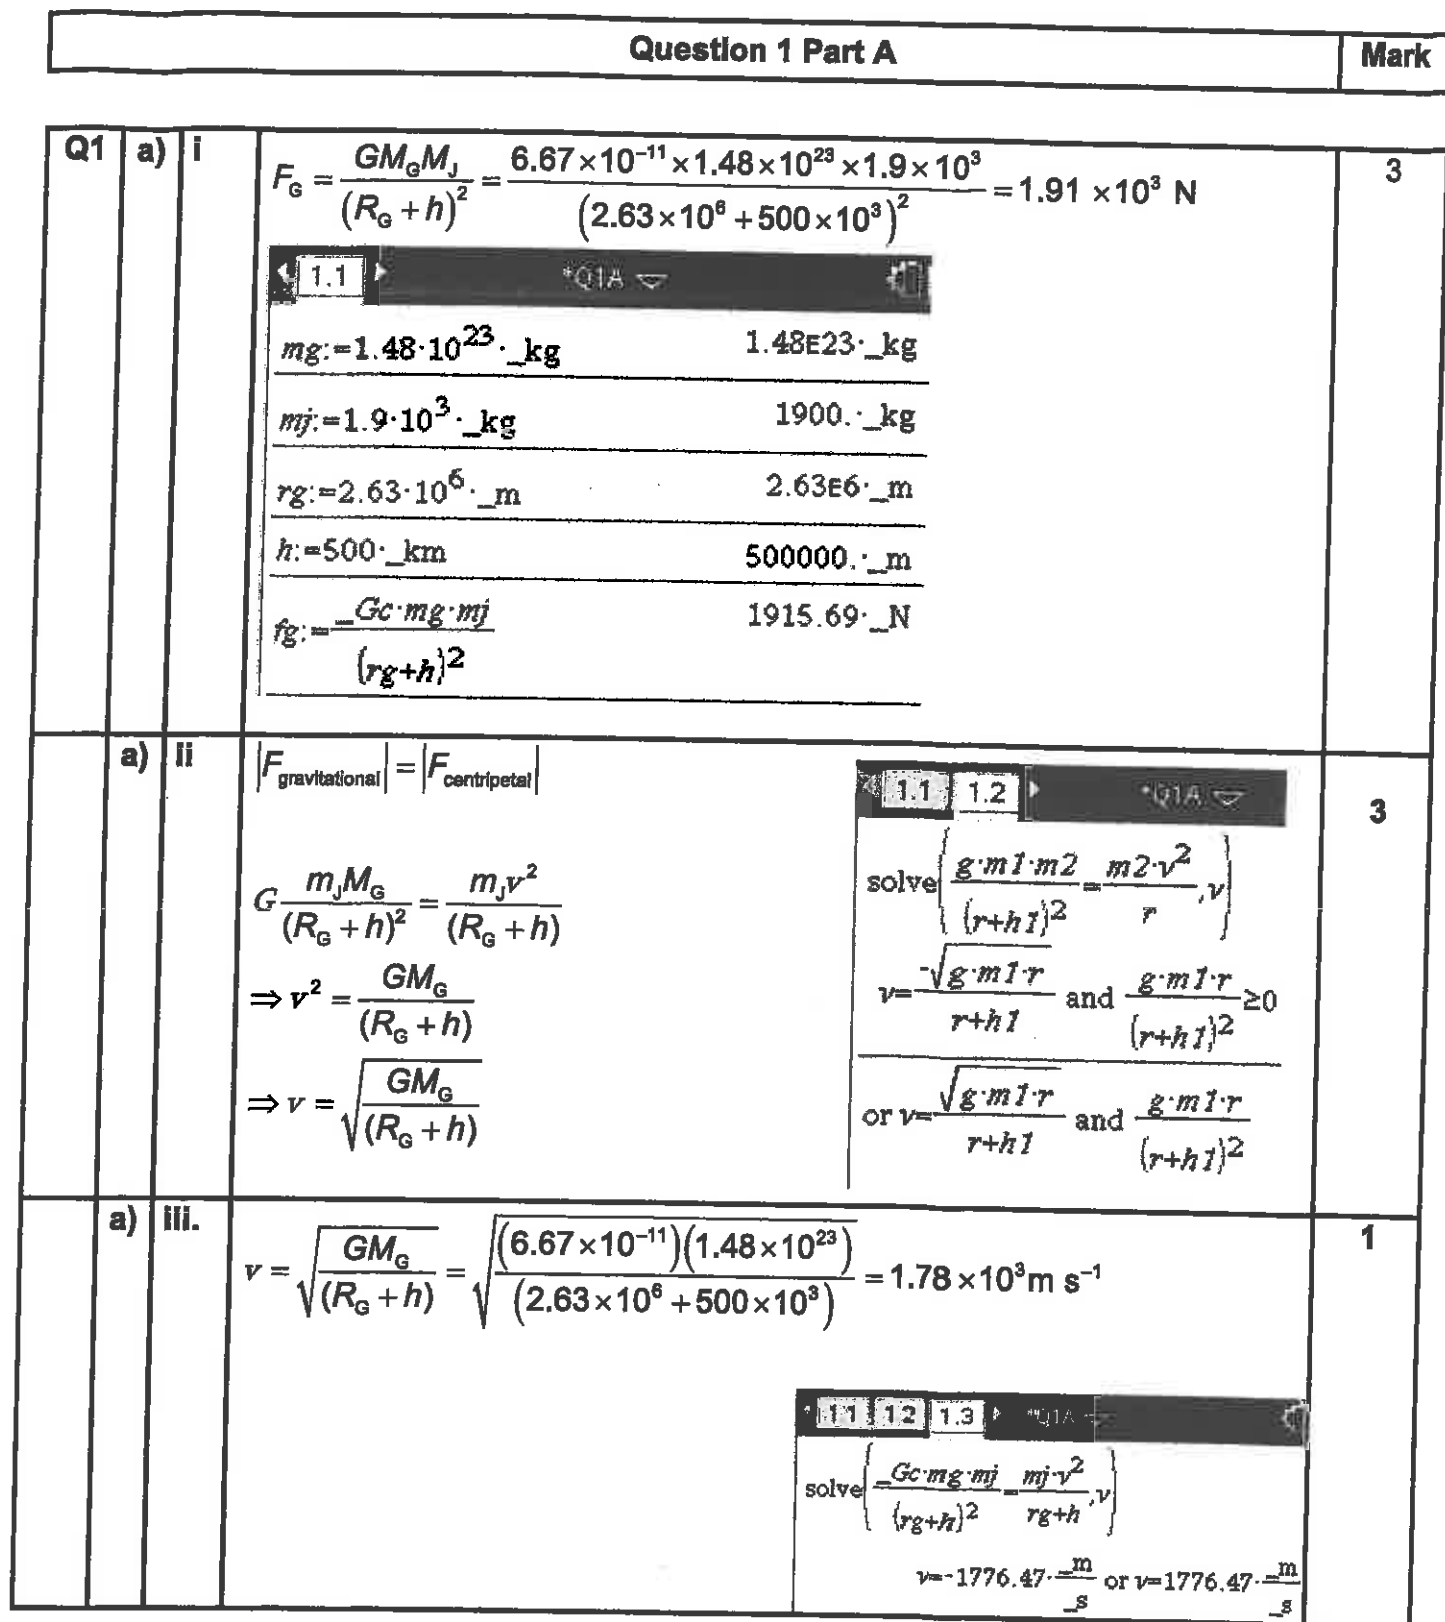 Question 1 Part A Mark
Q1 a) i F_G = GM_GM_J / (R_G + h)² = 6.67×10⁻¹¹ ×1.48×10²³ ×1.9×10³ / (2.63×10⁶ + 500×10³)² = 1.91 ×10³ N 3
1.1 *Q1A
mg:=1.48·10²³·_kg 1.48E23·_kg
mj:=1.9·10³·_kg 1900.·_kg
rg:=2.63·10⁶·_m 2.63E6·_m
h:=500·_km 500000.·_m
fg:= _Gc·mg·mj / (rg+h)² 1915.69·_N
a) ii |F_gravitational| = |F_centripetal| 3
G m_JM_G / (R_G + h)² = m_Jv² / (R_G + h)
⇒ v² = GM_G / (R_G + h)
⇒ v = √(GM_G / (R_G + h))
1.1 1.2 *Q1A
solve( g·m1·m2 / (r+h1)² = m2·v² / r ,v)
v= -√(g·m1·r) / r+h1 and g·m1·r / (r+h1)² ≥0
or v= √(g·m1·r) / r+h1 and g·m1·r / (r+h1)²
a) iii. v = √(GM_G / (R_G + h)) = √((6.67×10⁻¹¹)(1.48×10²³) / (2.63×10⁶ + 500×10³)) = 1.78 ×10³m s⁻¹ 1
1.1 1.2 1.3 *Q1A
solve( _Gc·mg·mj / (rg+h)² = mj·v² / rg+h ,v)
v=-1776.47· _m / _s or v=1776.47· _m / _s